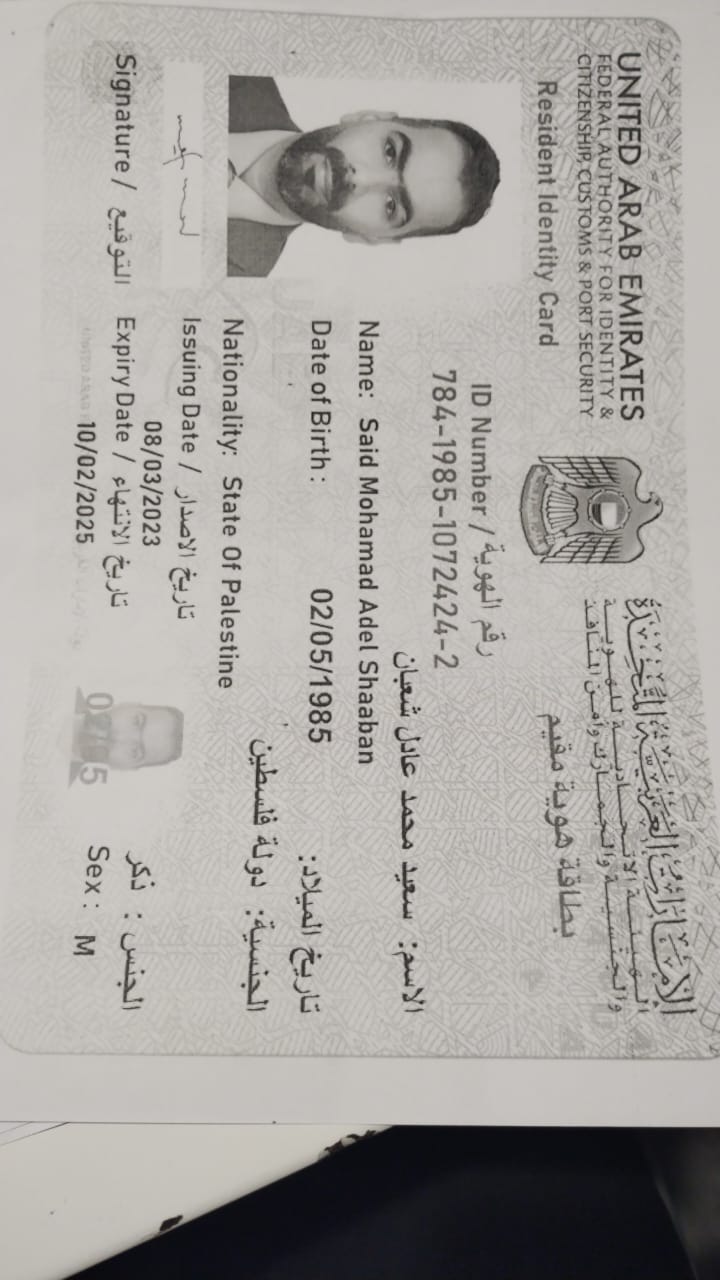 UNITED ARAB EMIRATES
FEDERAL AUTHORITY FOR IDENTITY &
CITIZENSHIP, CUSTOMS & PORT SECURITY
الإمارات العربية المتحدة
الهيئة الاتحادية للهوية
والجنسية والجمارك وأمن المنافذ
Resident Identity Card
بطاقة هوية مقيم
ID Number / رقم الهوية
784-1985-1072424-2
الاسم: سعيد محمد عادل شعبان
Name: Said Mohamad Adel Shaaban
Date of Birth : 02/05/1985 تاريخ الميلاد:
الجنسية: دولة فلسطين
Nationality: State Of Palestine
Issuing Date / تاريخ الاصدار
08/03/2023
Expiry Date / تاريخ الانتهاء
10/02/2025
الجنس : ذكر
Sex : M
Signature / التوقيع